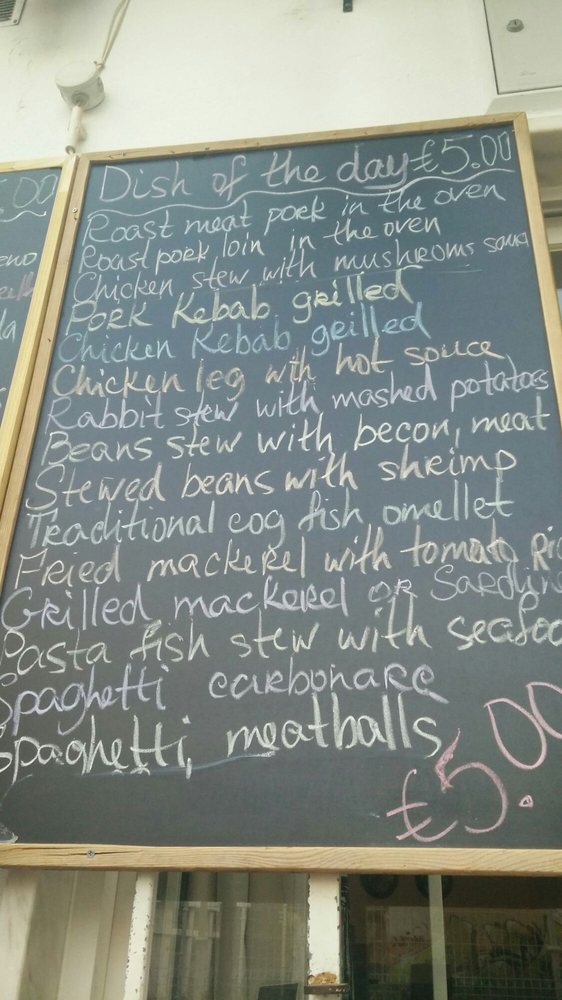 Dish of the day €5.00
Roast meat pork in the oven
Roast pork loin in the oven
Chicken stew with mushroms sauce
Pork Kebab grilled
Chicken Kebab grilled
Chicken leg with hot souce
Rabbit stew with mashed potatoes
Beans stew with becon, meat
Stewed beans with shrimp
Traditional cog fish omellet
Fried mackerel with tomato Ric
Grilled mackerel or Sardine
Pasta fish stew with seafoo
Spaghetti carbonare
Spaghetti meatballs
€5.00